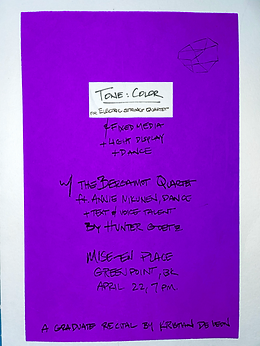 TONE: COLOR
FOR ELECTRIC STRING QUARTET
& FIXED MEDIA
+ LIGHT DISPLAY
+ DANCE
W/ THE BERGAMOT QUARTET
ft. ANNIE NIKUNEN, DANCE
+ TEXT & VOICE TALENT
BY HUNTER GOETZ
MISE-EN PLACE
GREENPOINT, BK
APRIL 22, 7 PM
A GRADUATE RECITAL BY KRISTIAN DE LEON